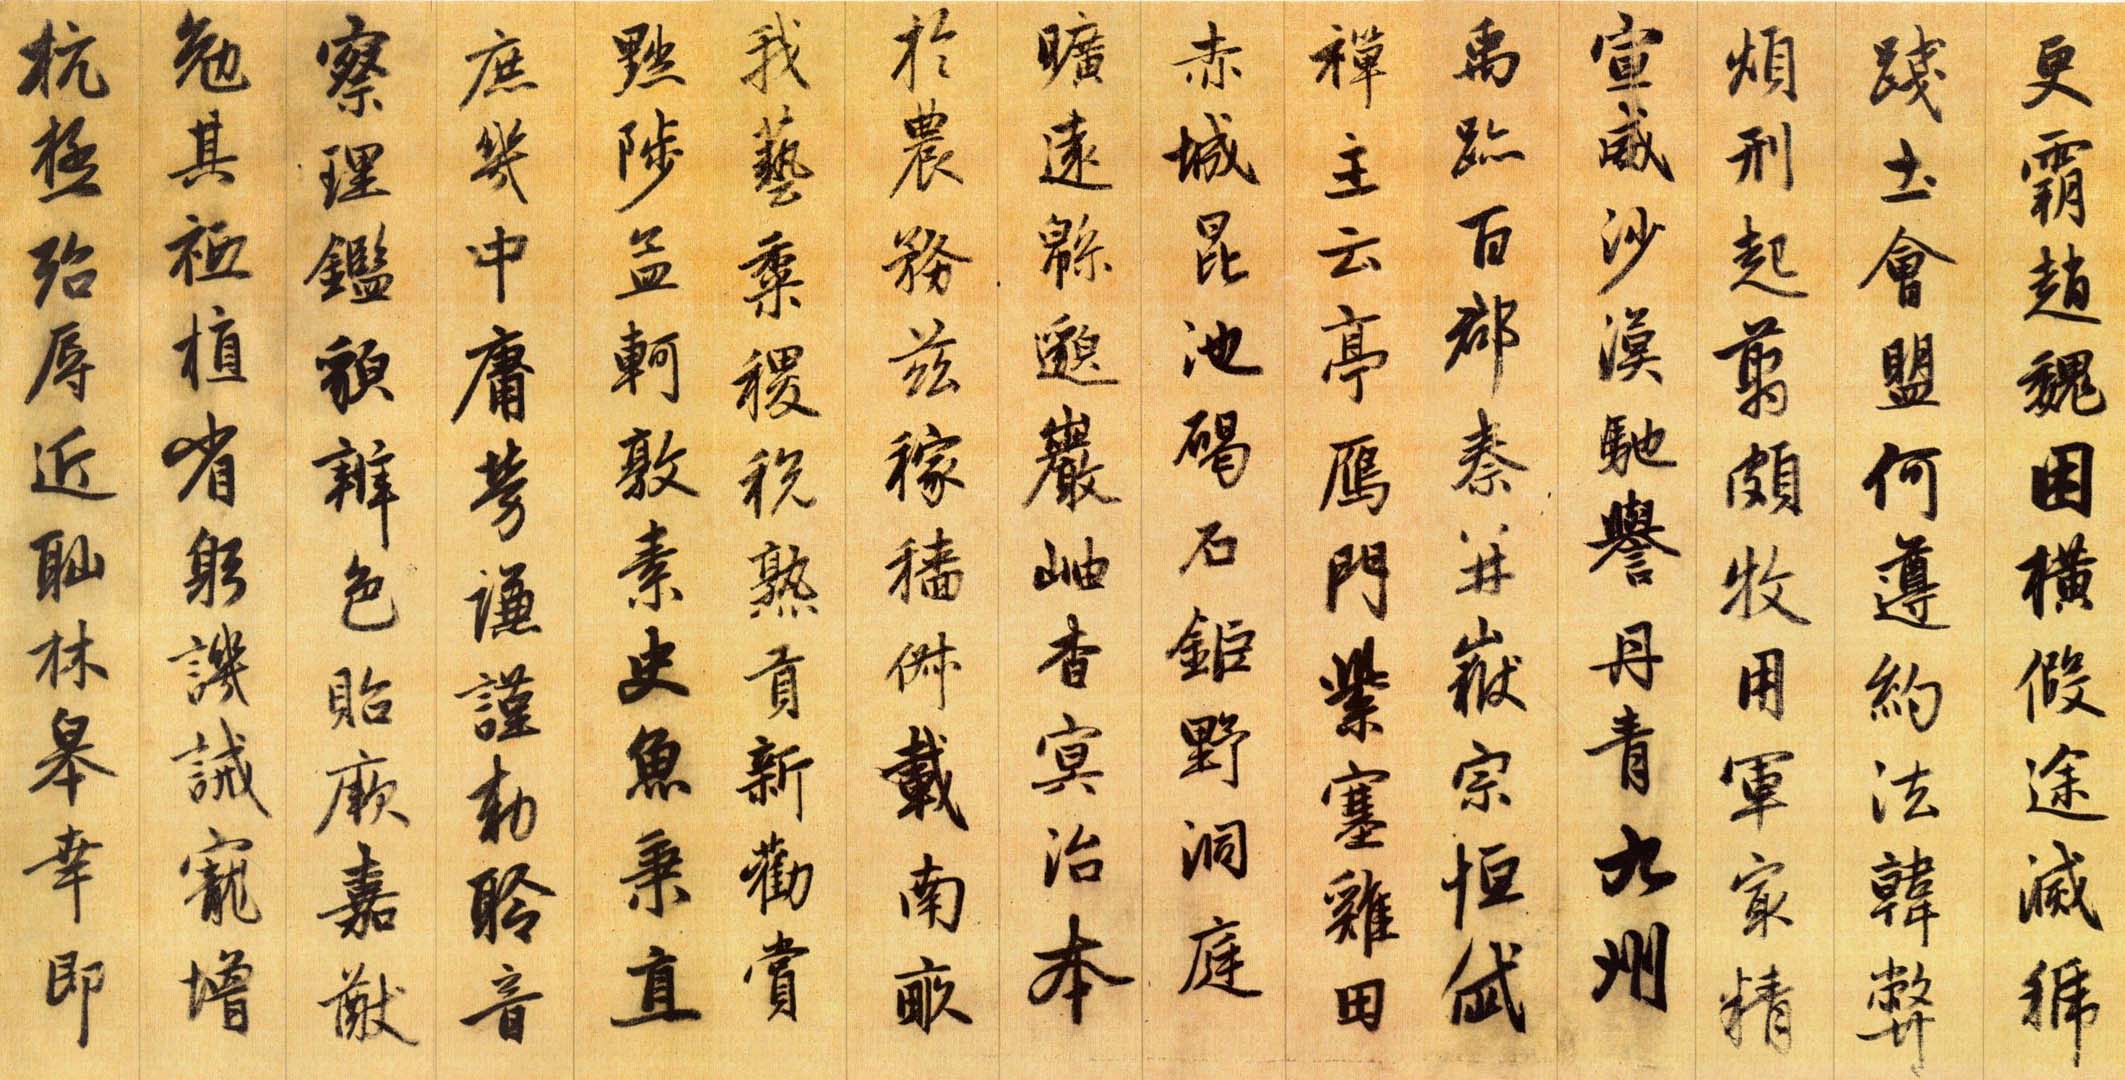 更霸趙魏困橫假途滅虢
踐土會盟何遵約法韓弊
煩刑起翦頗牧用軍家精
宣威沙漠馳譽丹青九州
禹跡百郡秦并嶽宗恒岱
禪主云亭鴈門紫塞雞田
赤城昆池碣石鉅野洞庭
曠遠緜邈巖岫杳冥治本
於農務茲稼穡俶載南畝
我藝黍稷稅熟貢新勸賞
黜陟孟軻敦素史魚秉直
庶幾中庸勞謙謹勑聆音
察理鑑貌辨色貽厥嘉猷
勉其祗植省躬譏誡寵增
抗極殆辱近恥林皋幸即